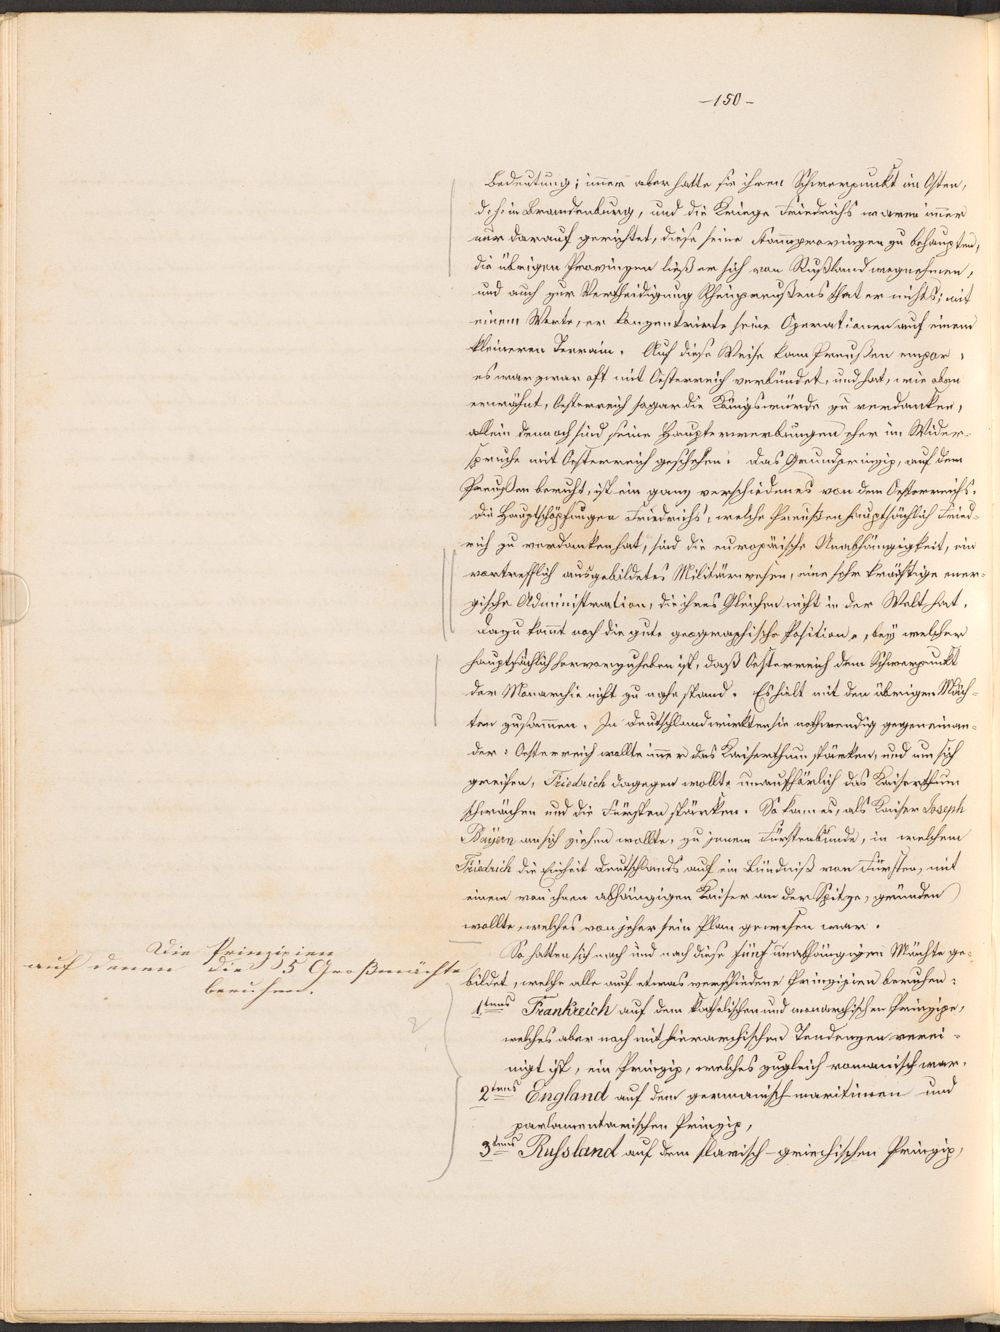 -150-
Bedeutung; immer aber hatte sie ihren Schwerpunkt im Osten,
d. h. in Brandenburg, und die Kriege Friedrichs waren immer
nur darauf gerichtet, diese seine Stammprovinzen zu behaupten,
die übrigen Provinzen ließ er sich von Rußland wegnehmen,
und auch zur Vertheidigung Rheinpreußens that er nichts; mit
einem Worte, er konzentrirte seine Operationen auf einem
kleineren Terrain. Auf diese Weise kam Preußen empor,
es war zwar oft mit Oesterreich verbündet, und hat, wie oben
erwähnt, Oesterreich sogar die Königswürde zu verdanken,
allein dennoch sind seine Haupterwerbungen eher im Wider-
spruche mit Oesterreich geschehen. Das Grundprinzip, auf dem
Preußen beruht, ist ein ganz verschiedenes von dem Oesterreichs.
Die Hauptschöpfungen Friedrichs, welche Preußen hauptsächlich Fried-
rich zu verdanken hat, sind die europäische Unabhängigkeit, ein
vortrefflich ausgebildetes Militärwesen, eine sehr kräftige ener-
gische Administration, die ihres Gleichen nicht in der Welt hat.
Dazu kommt noch die gute geographische Position, bey welcher
hauptsächlich hervorzuheben ist, daß Oesterreich dem Schwerpunkt
der Monarchie nicht zu nahe stand. Es hielt mit den übrigen Mäch-
ten zusammen. In Deutschland wirkten sie nothwendig gegeneinan-
der: Oesterreich wollte immer das Kaiserthum stärken, und um sich
greifen, Friedrich dagegen wollte unaufhörlich das Kaiserthum
schwächen und die Fürsten stärken. So kam es, als Kaiser Joseph
Bayern an sich ziehen wollte, zu jenem Fürstenbunde, in welchem
Friedrich die Einheit Deutschlands auf ein Bündniß von Fürsten, mit
einem von ihnen abhängigen Kaiser an der Spitze, gründen
wollte, welches von jeher sein Plan gewesen war.
Die Prinzipien
auf denen die 5 Großmächte
beruhen.
So hatten sich nach und nach diese fünf unabhängigen Mächte ge-
bildet, welche alle auf etwas verschiedene Prinzipien beruhen:
1tens Frankreich auf dem katholischen und monarchischen Prinzipe,
welches aber noch mit hierarchischen Tendenzen verei-
nigt ist, ein Prinzip, welches zugleich romanisch war.
2tens England auf dem germanisch-maritimen und
parlamentarischen Prinzip,
3tens Russland auf dem slavisch-griechischen Prinzip,